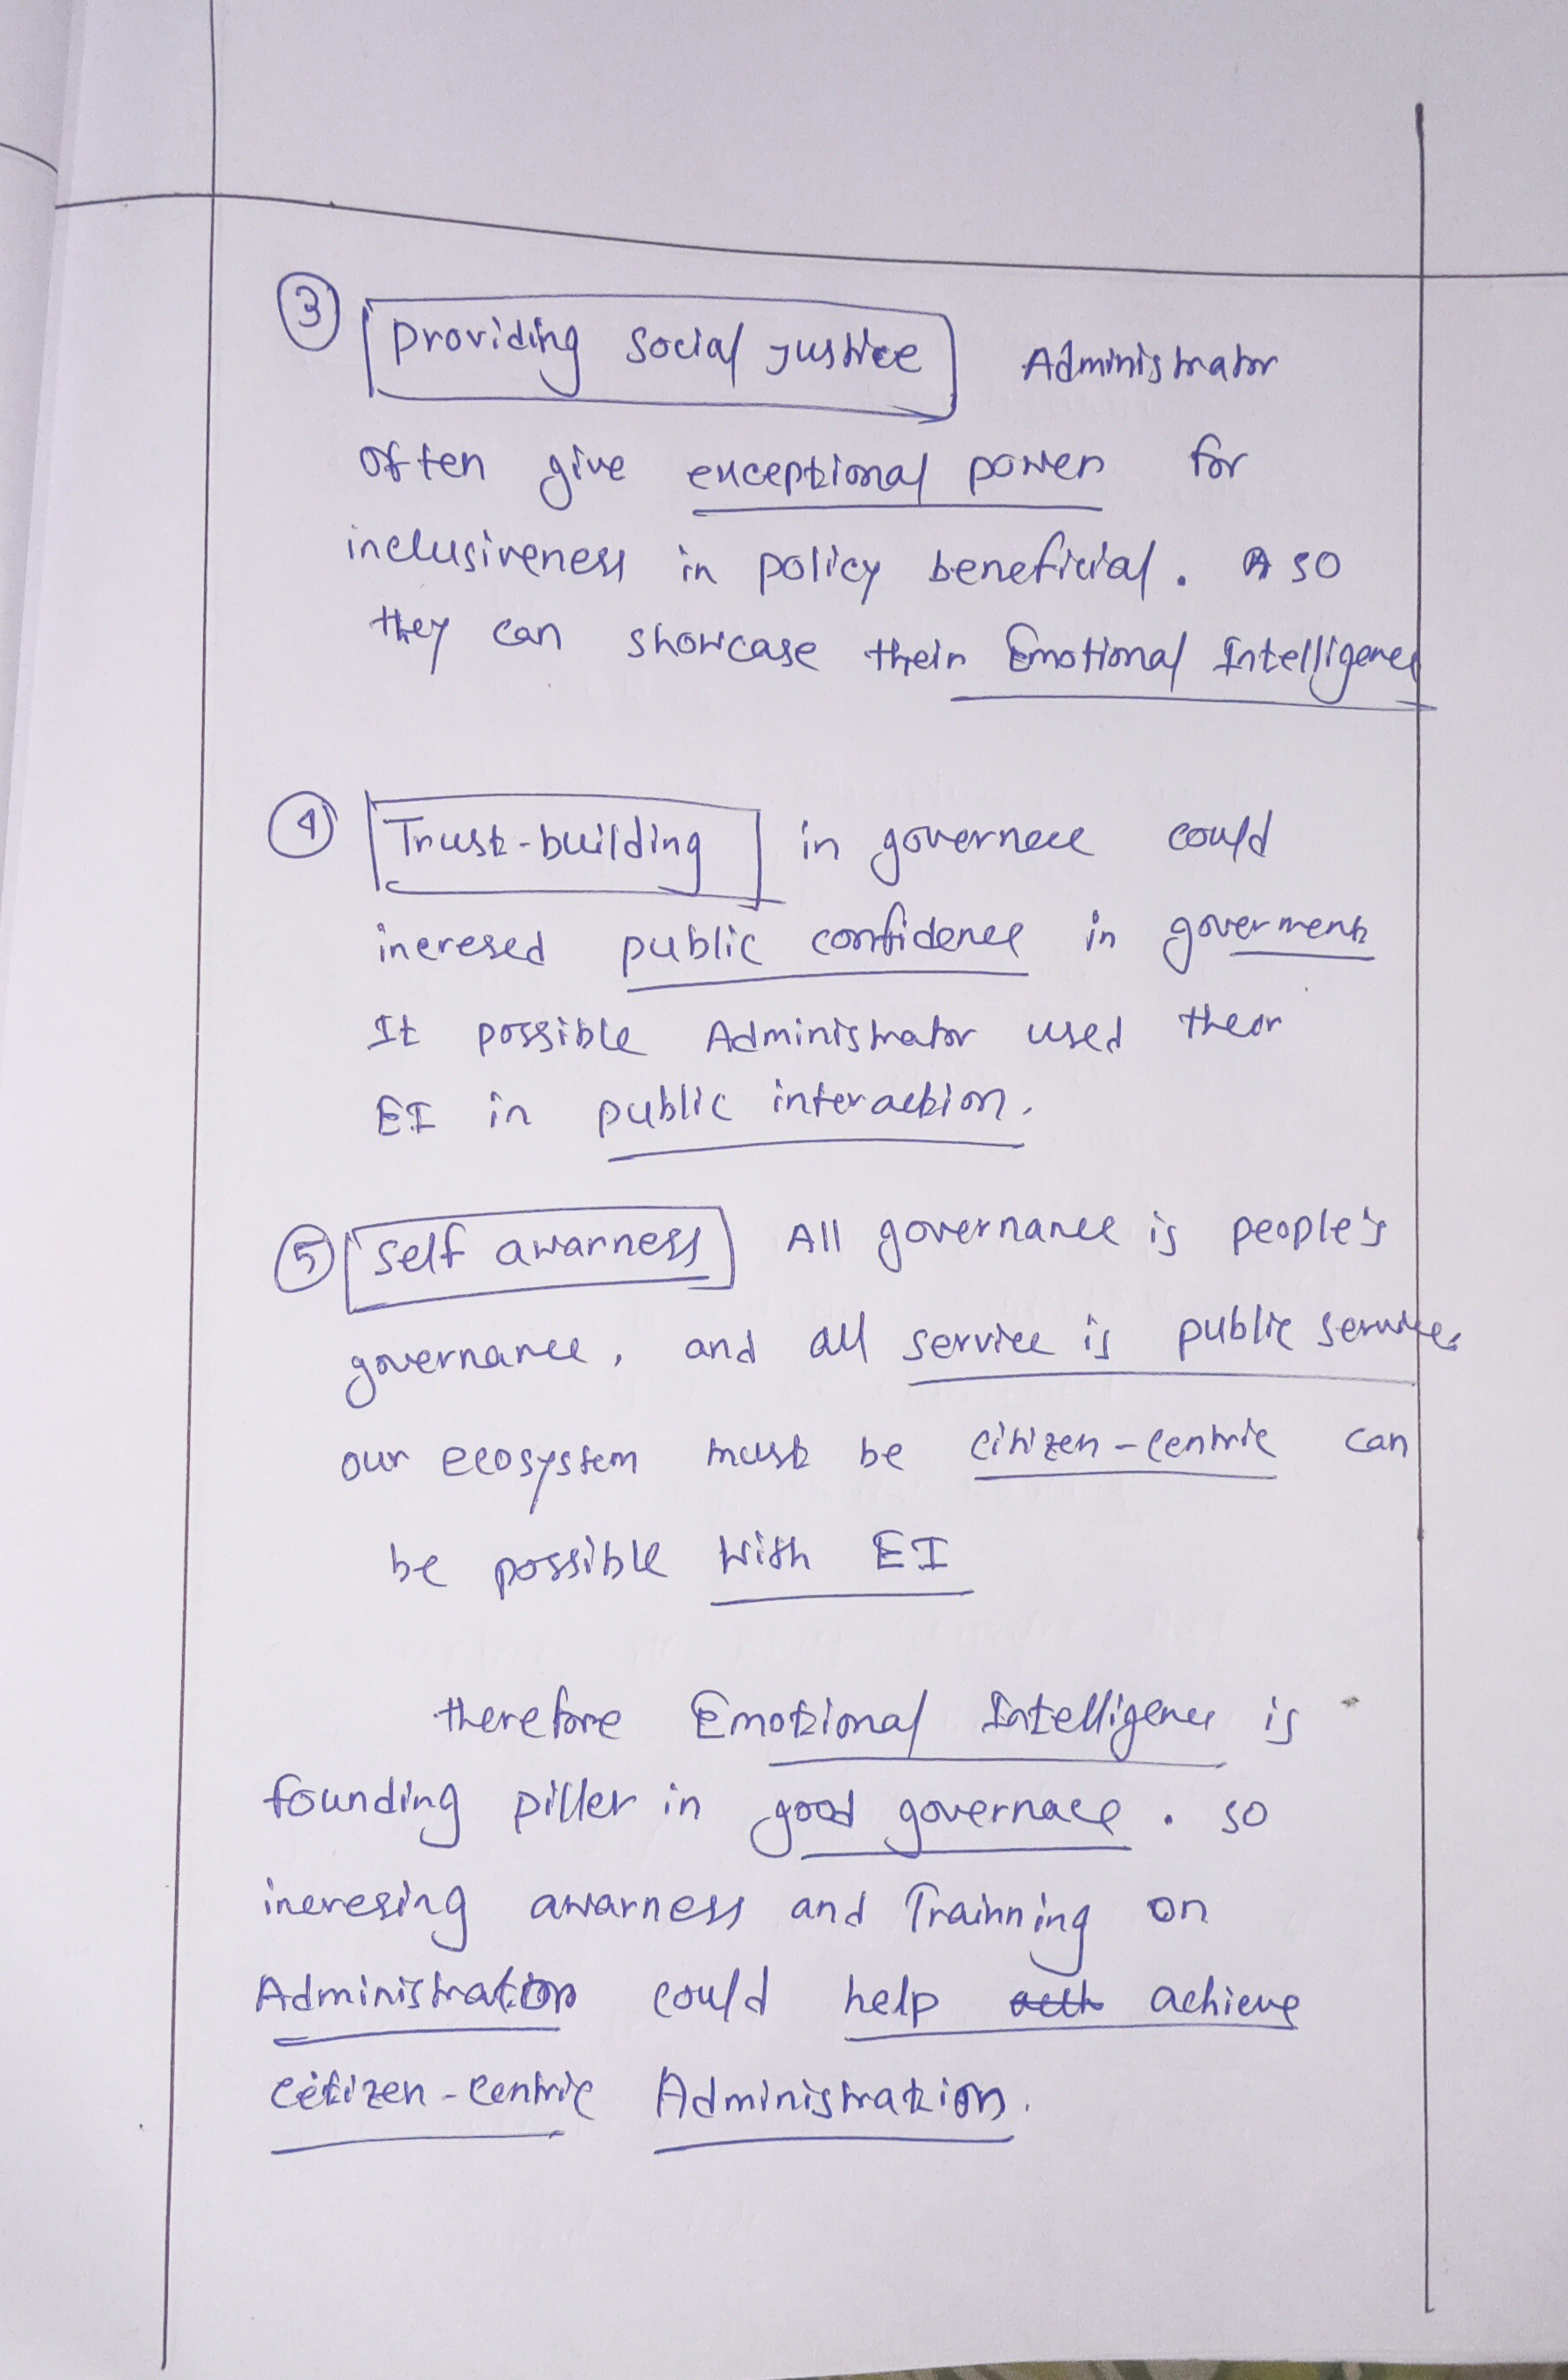 ③ Providing Social Justice Administrator
often give exceptional power for
inclusiveness in policy beneficial. A so
they can showcase their Emotional Intelligence
④ Trust-building in governece could
incresed public confidence in goverment
It possible Administrator used their
EI in public interaction.
⑤ Self awarness All governance is people's
governance, and all service is public service.
our ecosystem must be citizen-centric can
be possible with EI
therefore Emotional Intelligence is
founding piller in good governace. so
incresing awarness and Trainning on
Administration could help achieve
citizen-centric Administration.